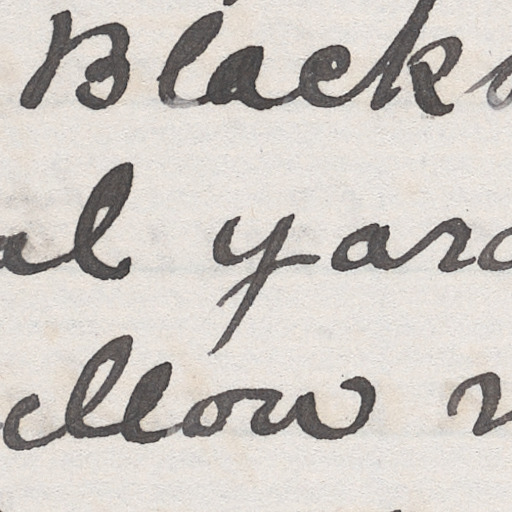 Black
al yard
ellow